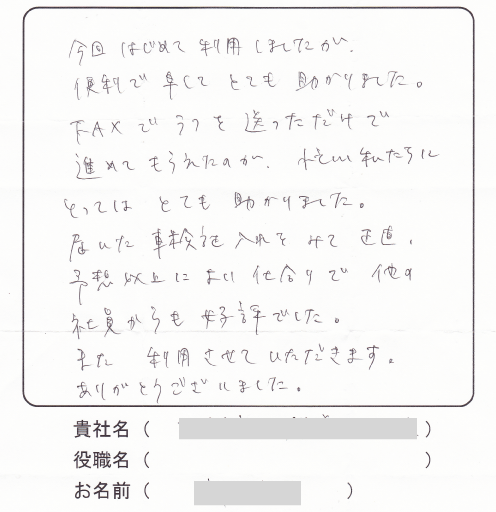 今回 はじめて 利用しましたが、
便利で 早くて とても 助かりました。
FAXで うつを 送っただけで
進めてもらえたのが、忙しい私たちに
とっては とても 助かりました。
届いた 車検証入れを みて 正直、
予想以上に よい仕合りで 他の
社員からも 好評でした。
また 利用させて いただきます。
ありがとうございました。
貴社名（ ）
役職名（ ）
お名前（ ）